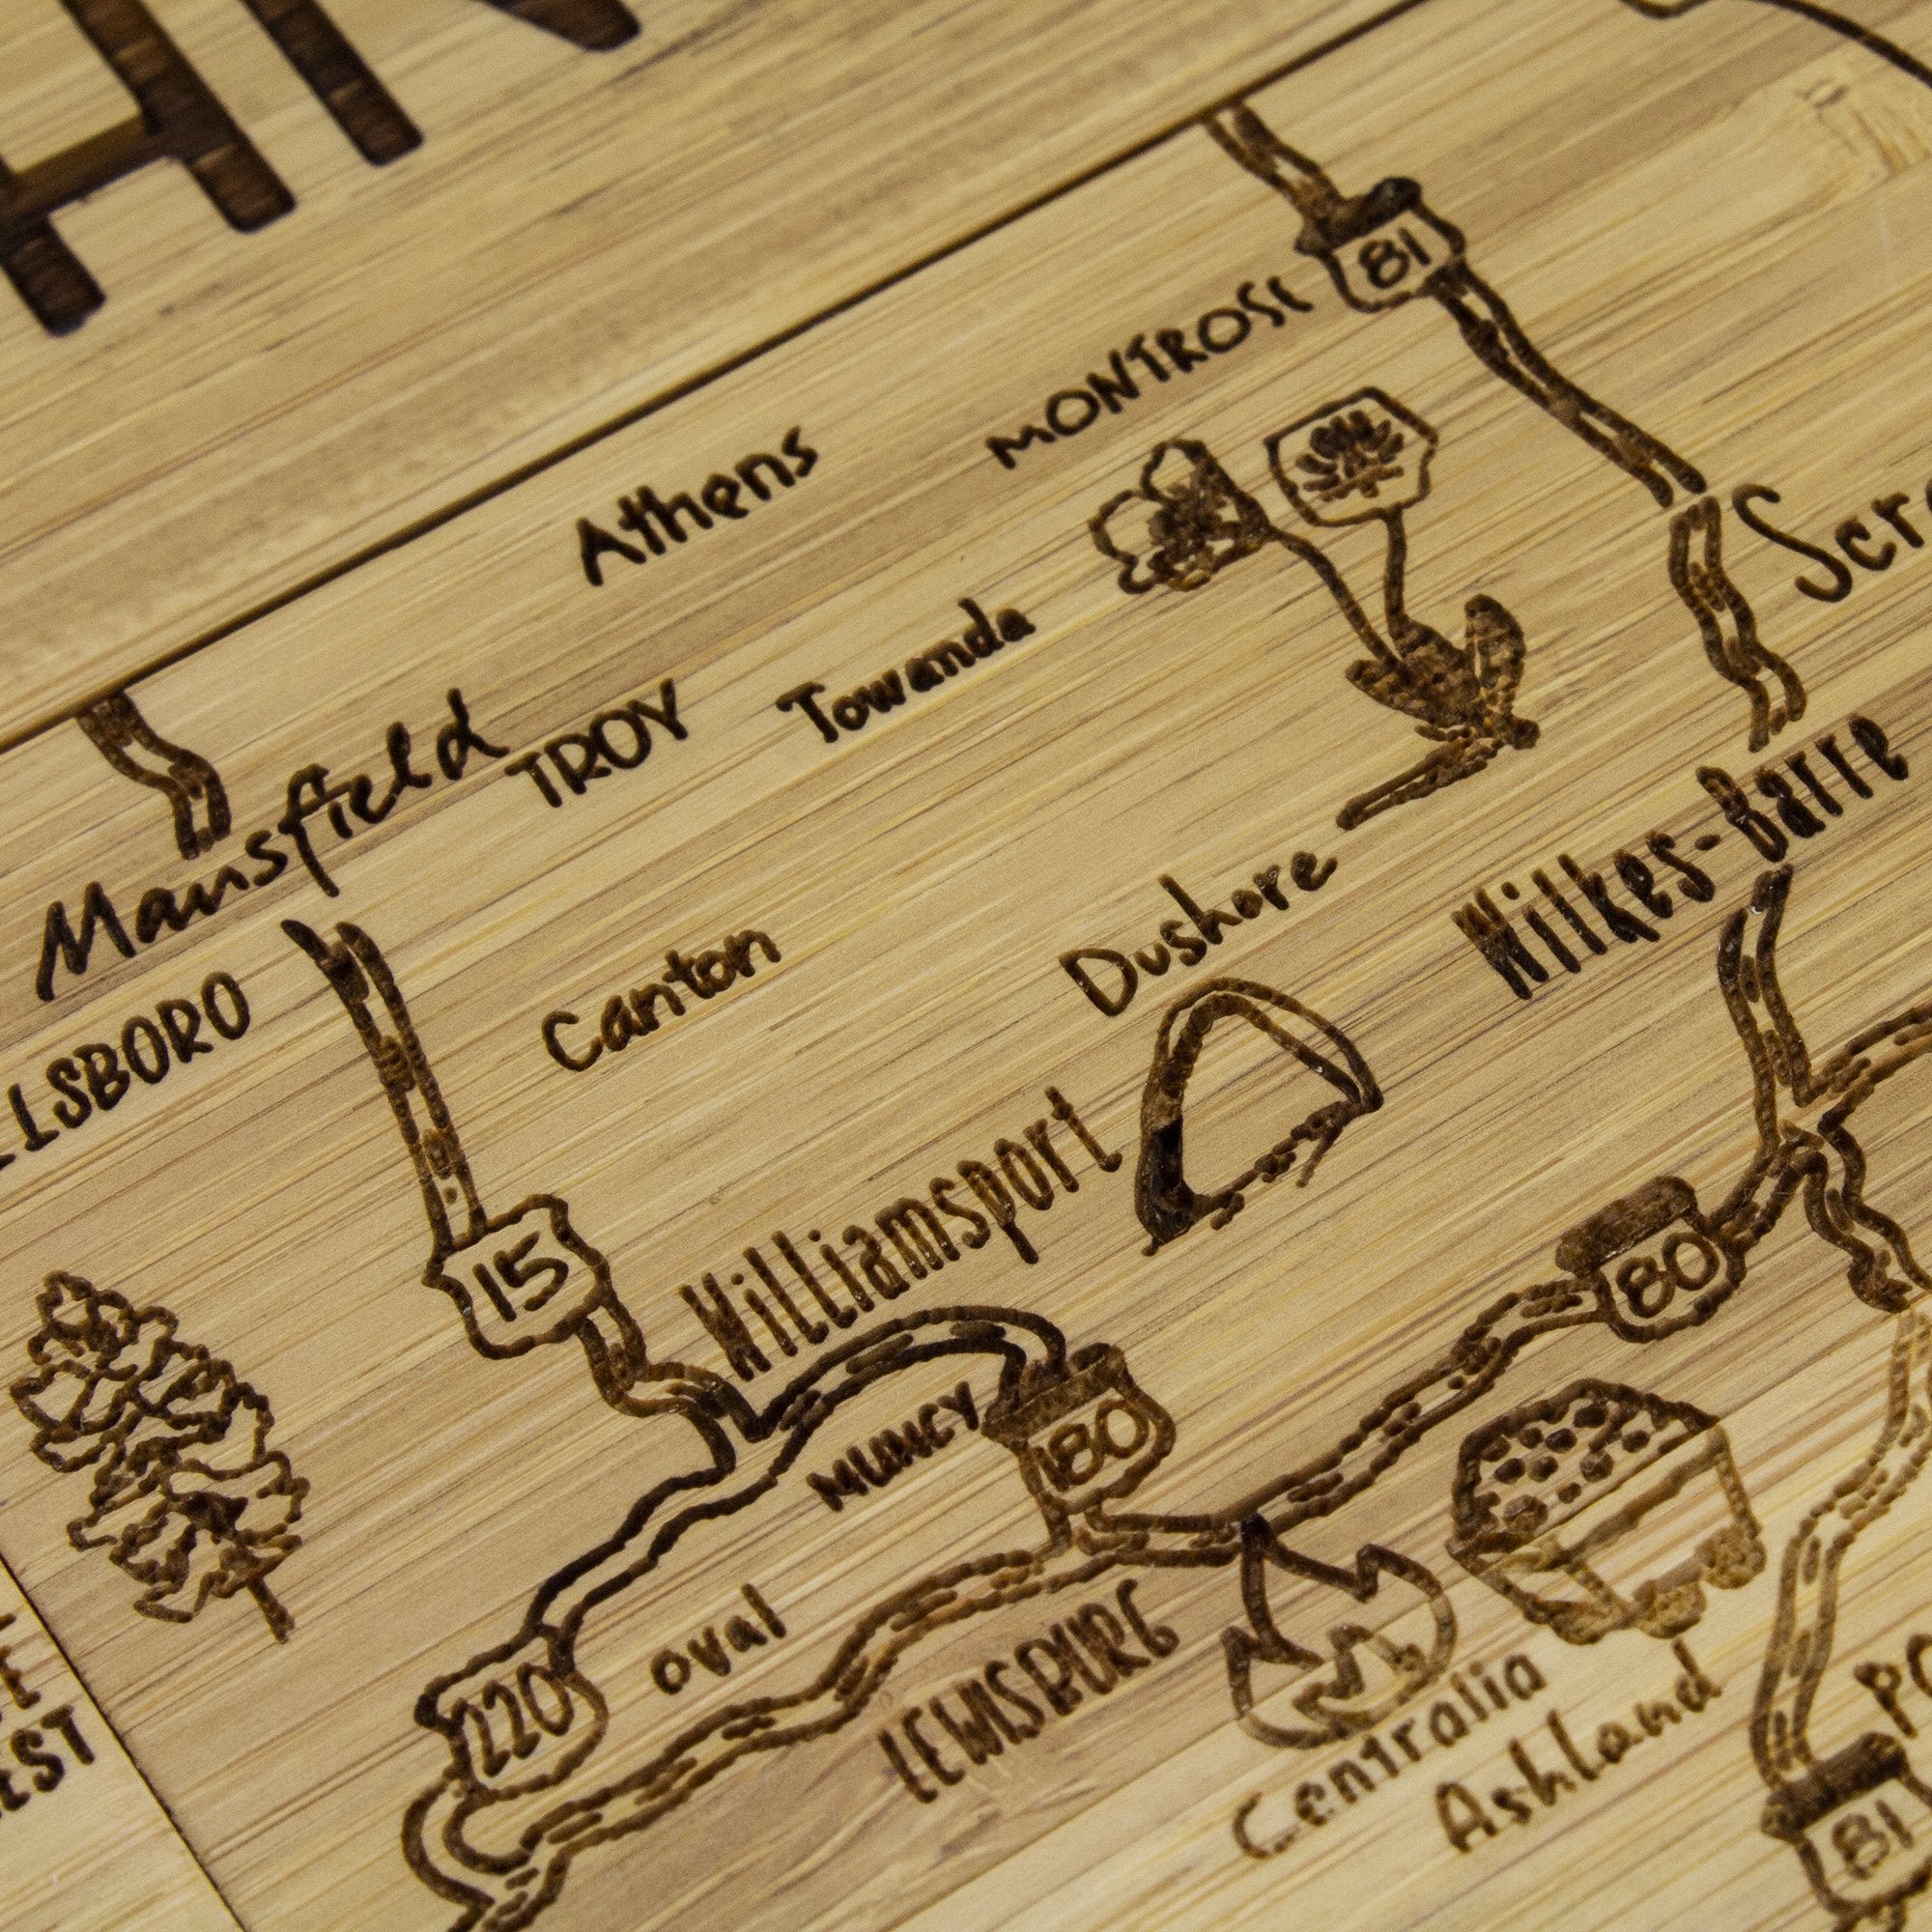 81
MONTROSE
Athens
Scr
Towanda
TROY
Mansfield
Wilkes-Barre
Dushore
Canton
LSBORO
Williamsport
15
80
MUNCY
180
oval
LEWISBURG
220
Centralia
Ashland
EST
81